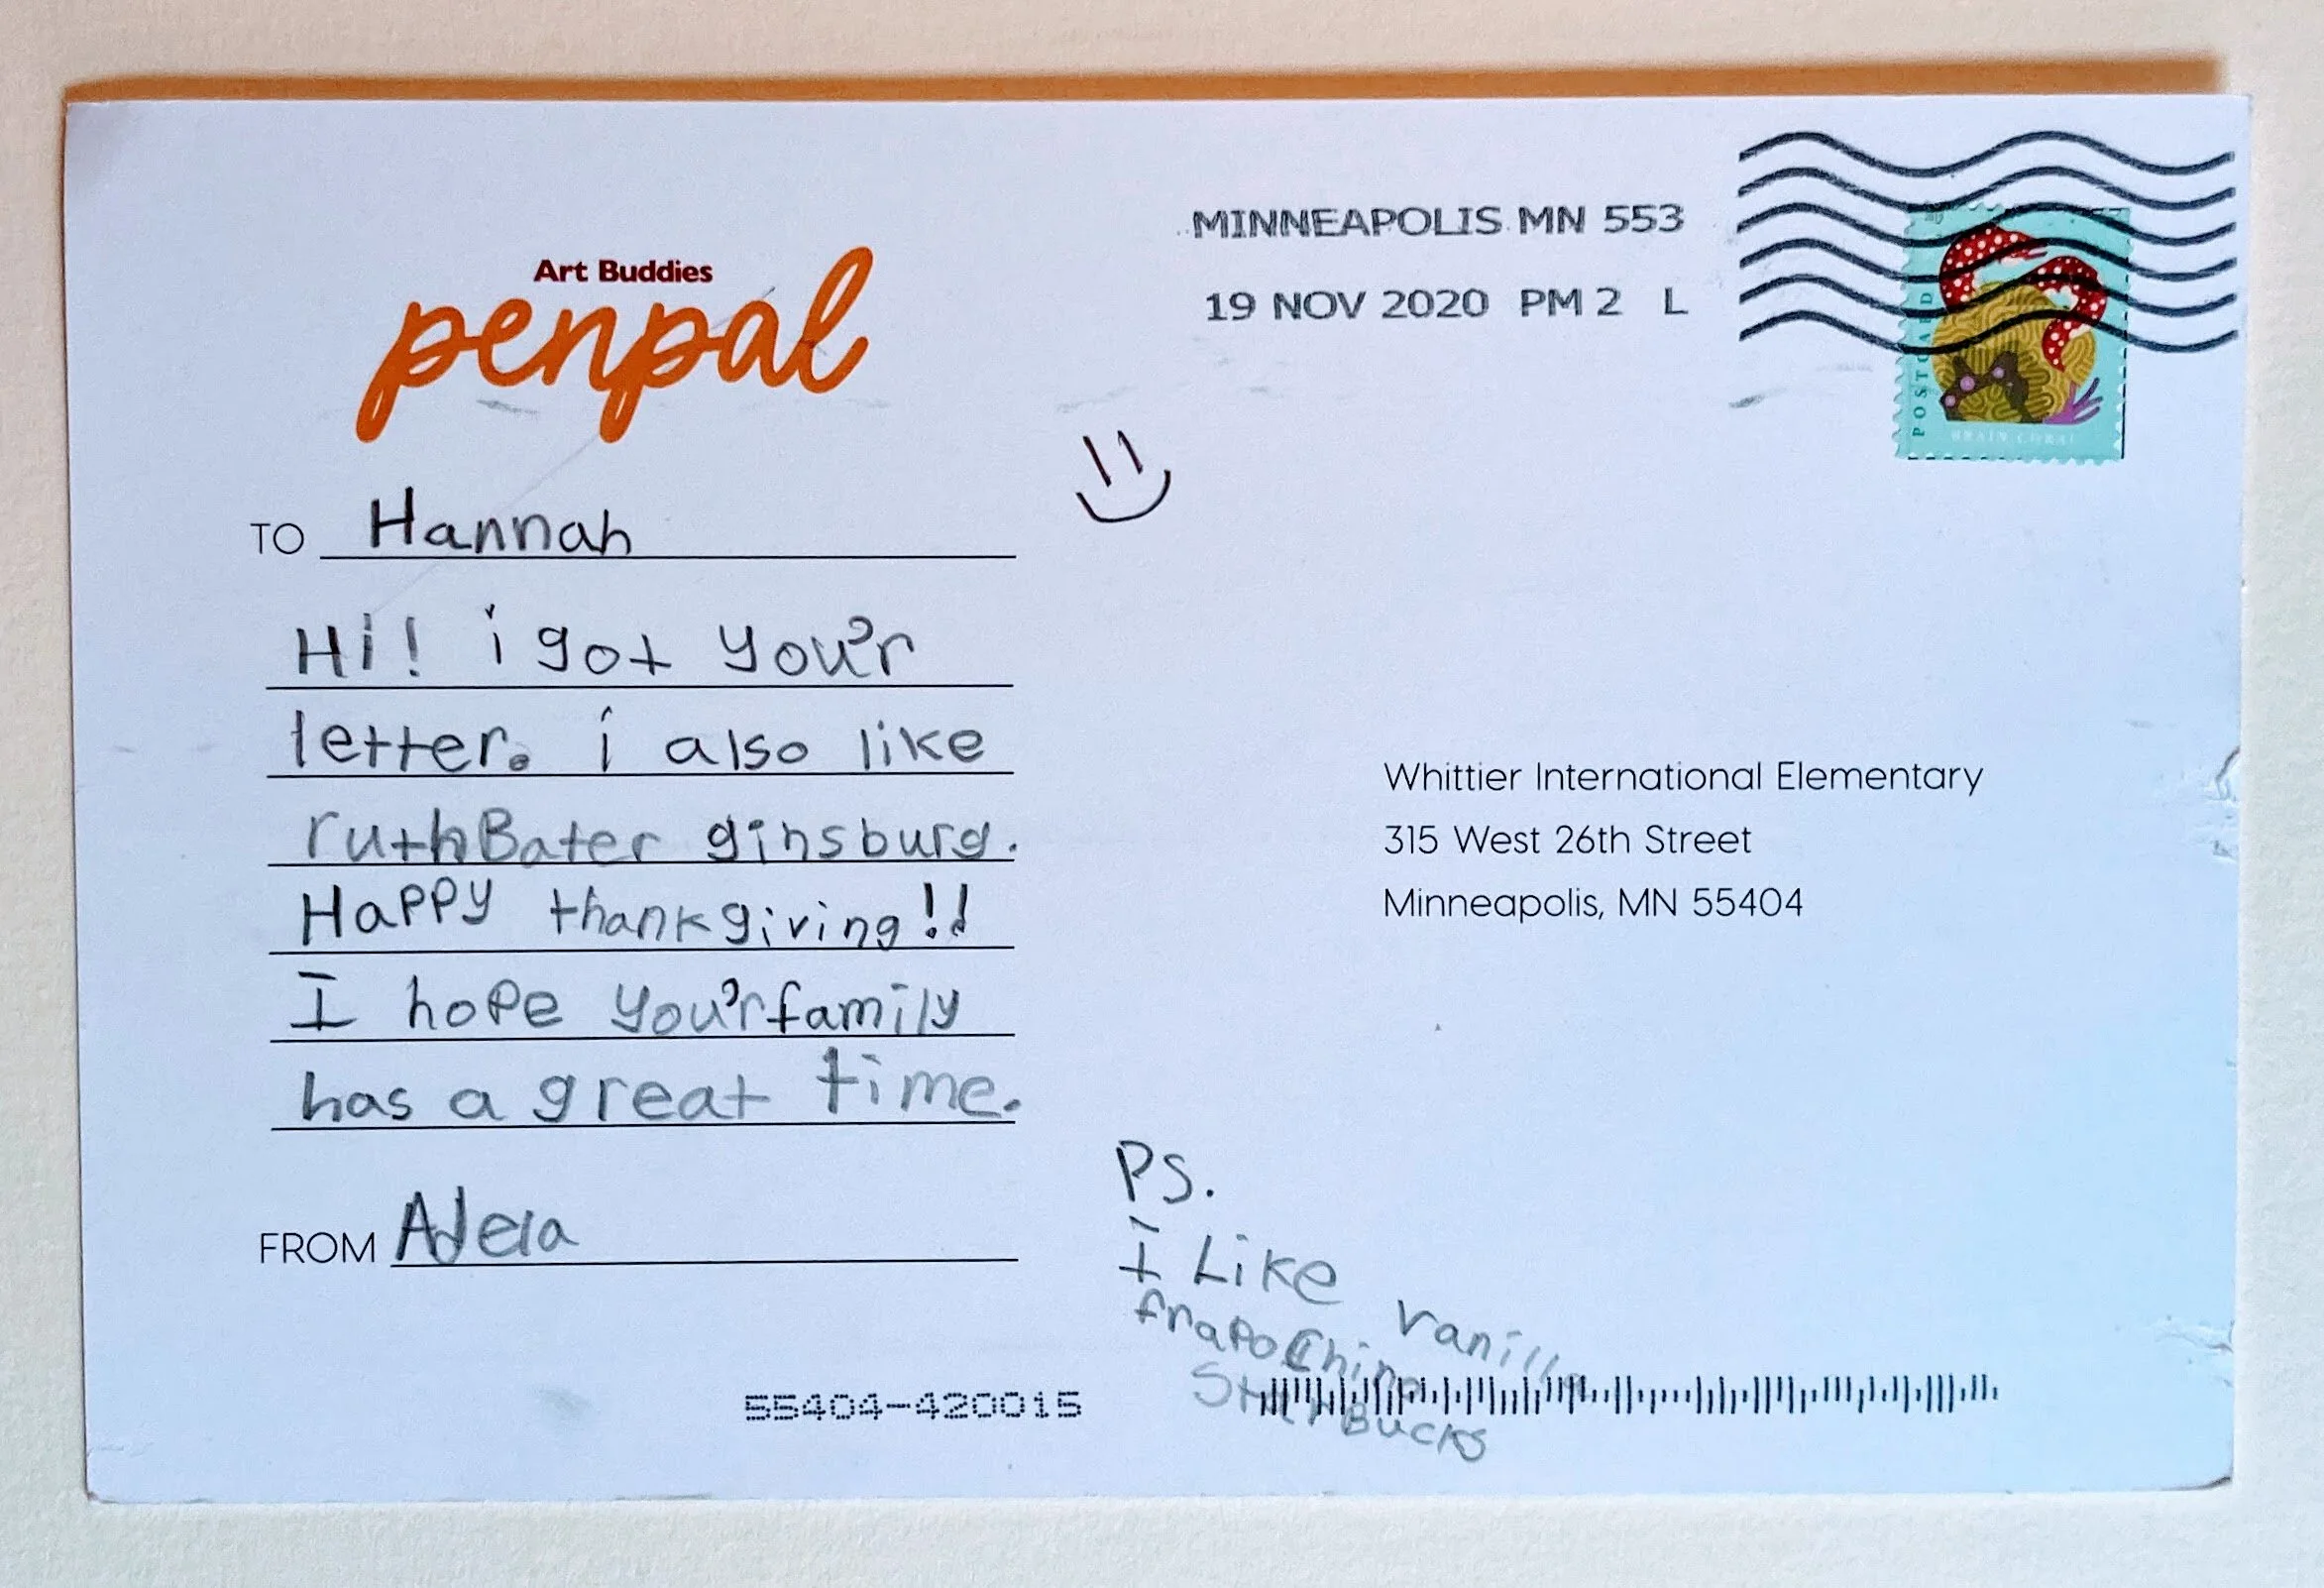 Art Buddies
penpal
MINNEAPOLIS MN 553
19 NOV 2020 PM 2 L
POSTCARD
BRAIN CORAL
TO Hannah
Hi! i got you'r
letter. i also like
ruthBater ginsburg.
Happy thankgiving!!
I hope you'r family
has a great time.
FROM Adela
Whittier International Elementary
315 West 26th Street
Minneapolis, MN 55404
PS.
I Like vanilla
frapochino
StarBucks
55404-420015